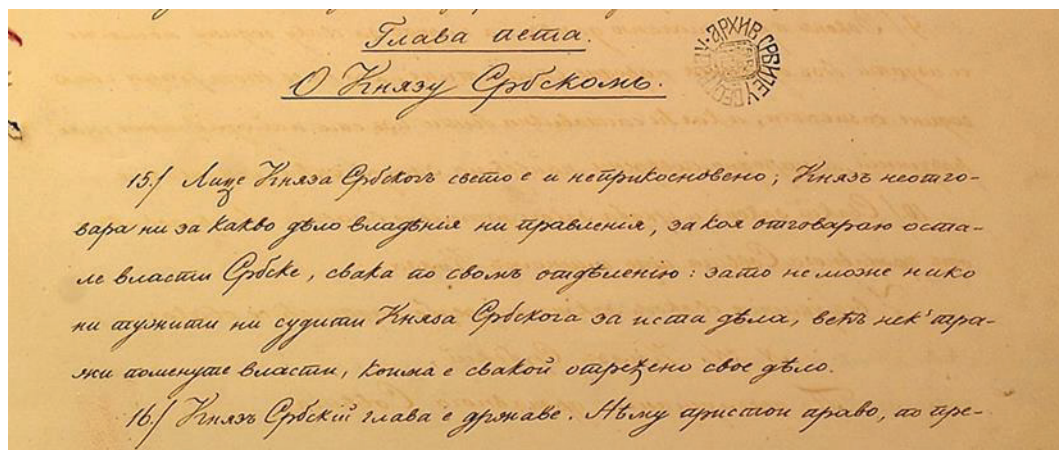 Глава пета.
О Князу Србскомъ.
АРХИВ СРБИЈЕ У БЕОГРАДУ
15./ Лице Княза Србскогъ свето є и неприкосновено; Князъ неотго-
вара ни за какво дѣло владѣнія ни правленія, за коя отговараю оста-
ле власти Србске, свака по свомъ отдѣленію: зато неможе нико
ни тужити ни судити Княза Србскога за иста дѣла, већъ нек' тра-
жи поменуте власти, коима є свакой опредѣлено свое дѣло.
16./ Князъ Србскій глава є државе. Нѣму пристои право, по пре-